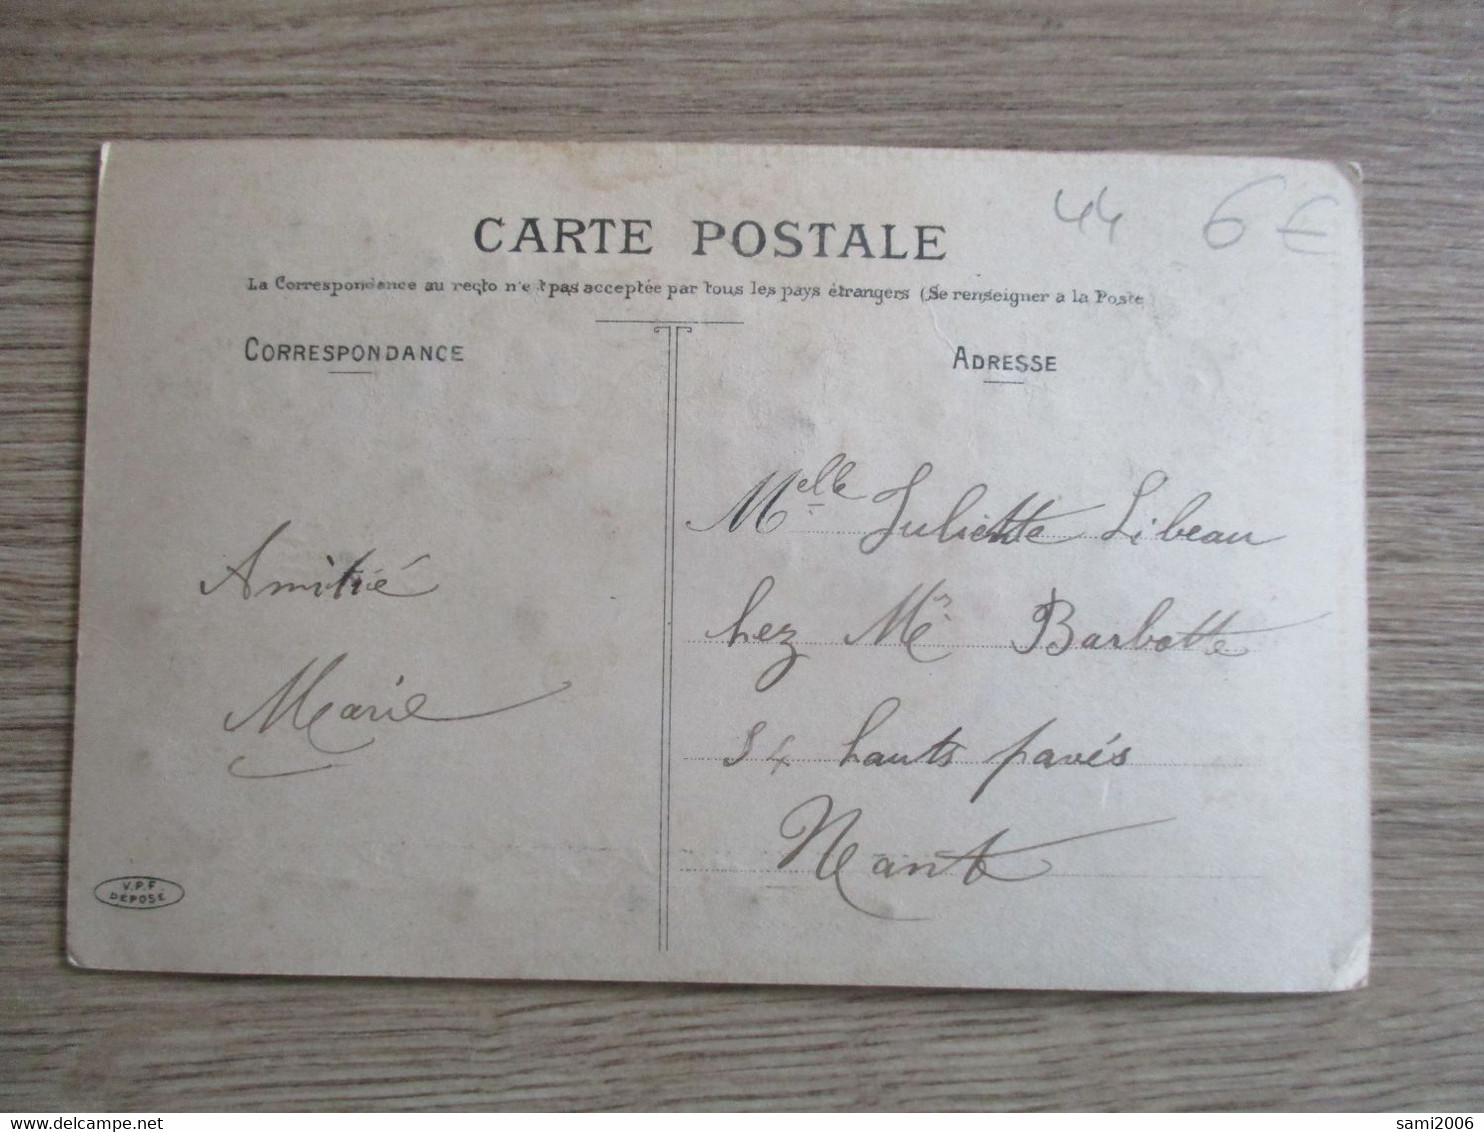 44 6 €
CARTE POSTALE
La Correspondance au recto n'est pas acceptée par tous les pays étrangers (Se renseigner a la Poste
CORRESPONDANCE
ADRESSE
Amitié
Marie
Melle Juliette Libeau
chez Mr Barbotte
54 hauts pavés
Nant
V.P.F.
DEPOSE
sami2006